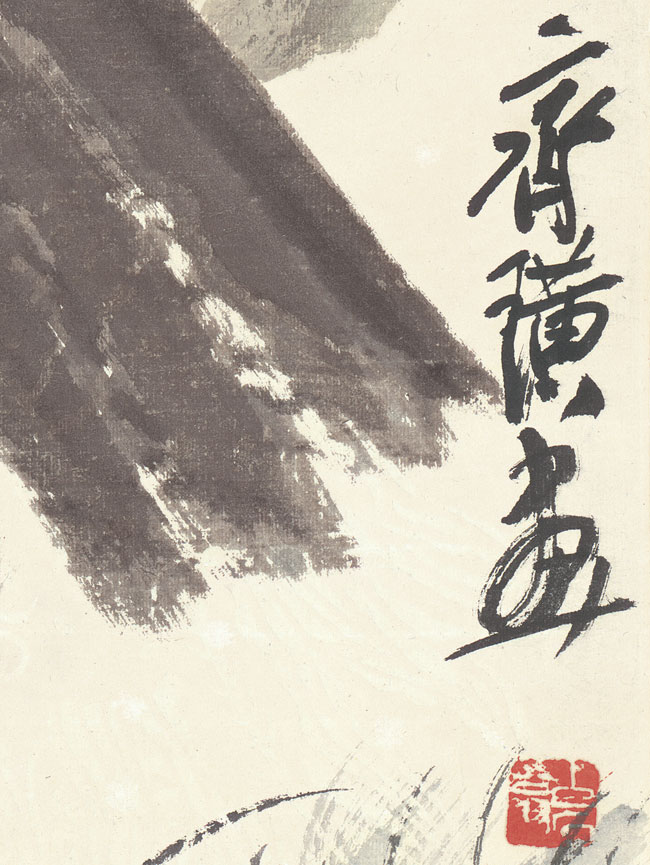 齊璜畫